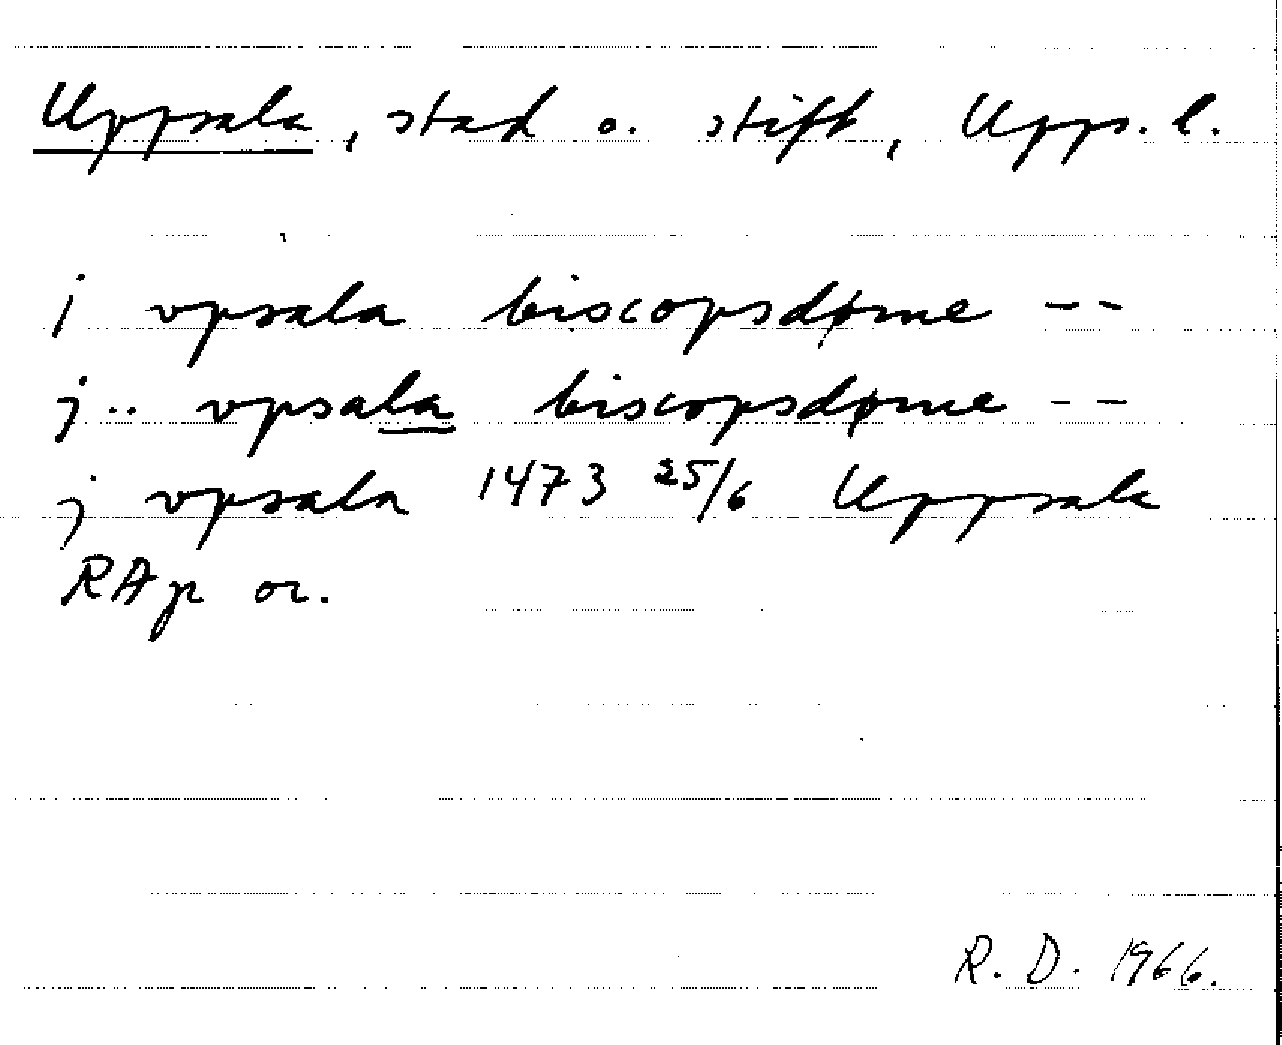 Uppsala, stad o. stift, Upps. l.
j vpsala biscopsdøme --
j.. vpsala biscopsdøme --
j vpsala 1473 25/6 Uppsala
RAp or.
R. D. 1966.